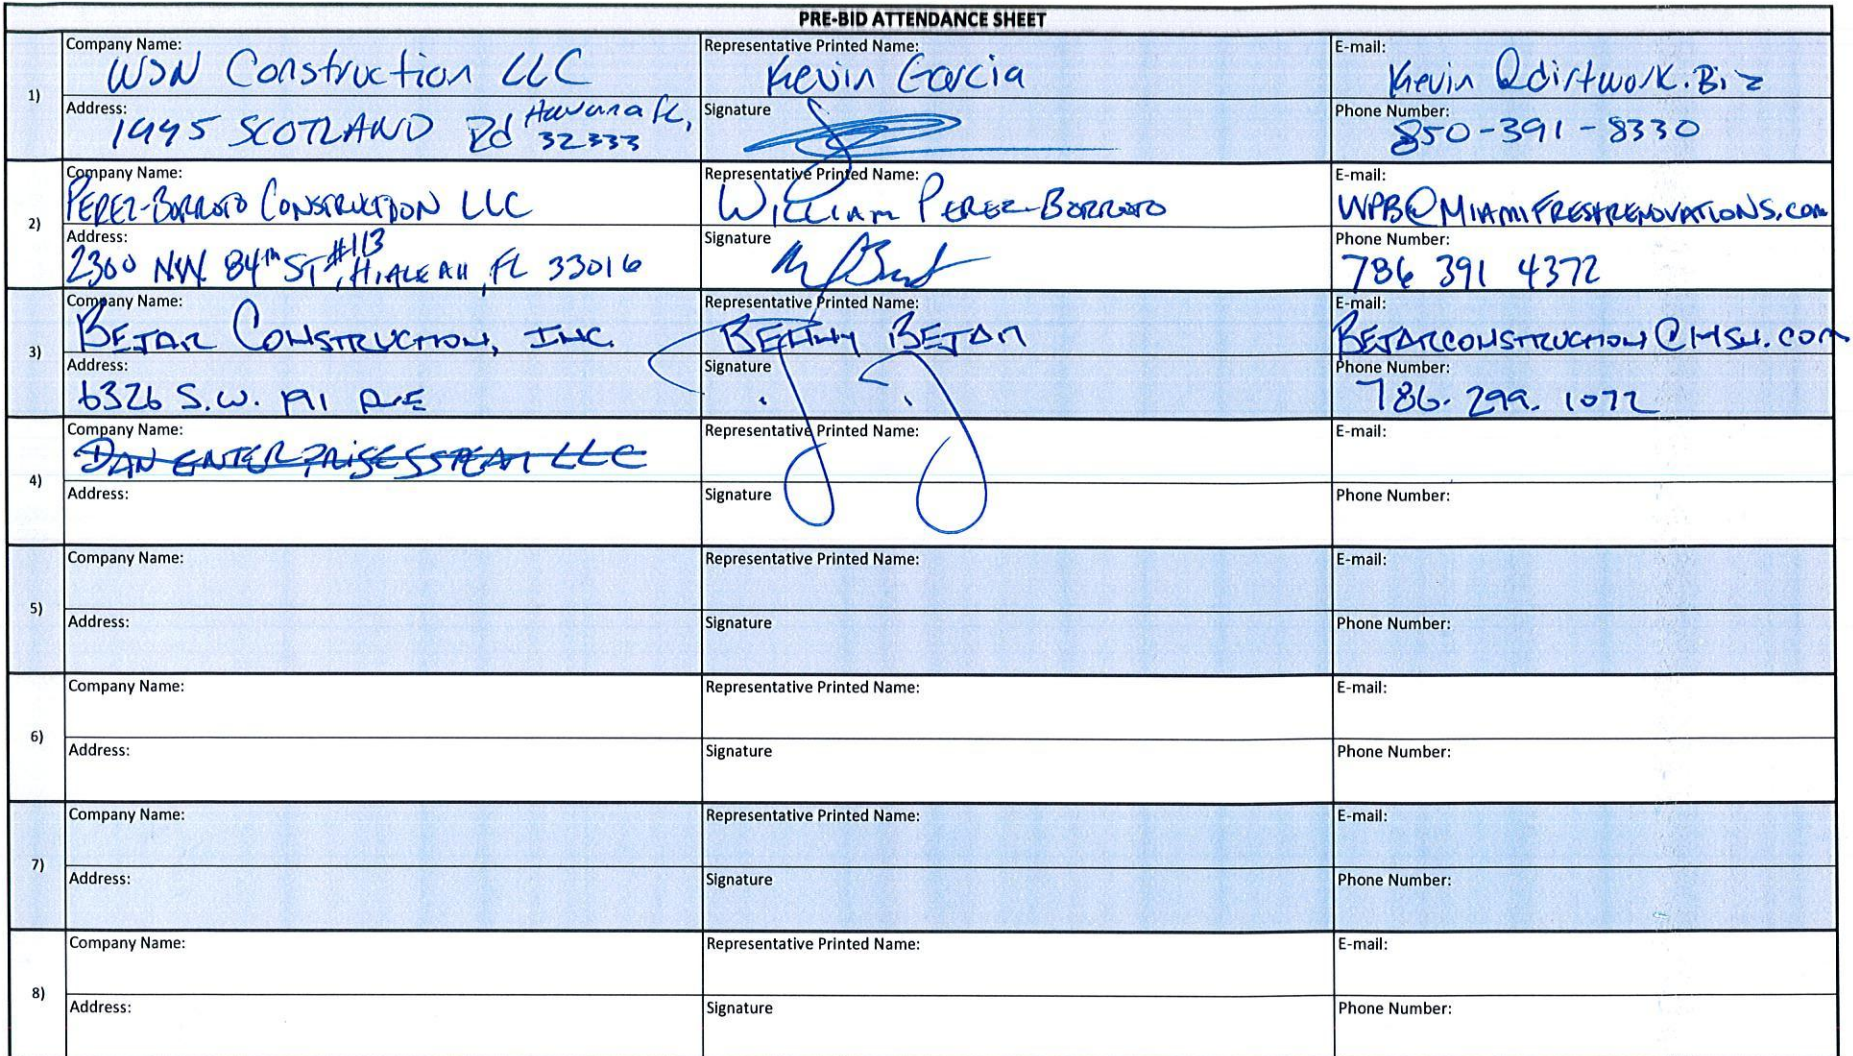 PRE-BID ATTENDANCE SHEET
1)
Company Name: WSN Construction LLC
Representative Printed Name: Kevin Garcia
E-mail: Kevin @dirtwork.Biz
Address: 1995 SCOTLAND Rd Havana FL, 32333
Signature
Phone Number: 850-391-8330
2)
Company Name: PEREZ-BORROTO CONSTRUCTION LLC
Representative Printed Name: WILLIAM PEREZ-BORROTO
E-mail: WPB@MIAMIFRESHRENOVATIONS.com
Address: 2360 NW. 84th ST #113, HIALEAH, FL 33016
Signature
Phone Number: 786 391 4372
3)
Company Name: BEJAR CONSTRUCTION, INC.
Representative Printed Name: BENNY BEJAR
E-mail: BEJARCONSTRUCTION@MSN.COM
Address: 6326 S.W. 191 AVE
Signature
Phone Number: 786. 299. 1072
4)
Company Name: DAN ENTERPRISES LLC
Representative Printed Name:
E-mail:
Address:
Signature
Phone Number:
5)
Company Name:
Representative Printed Name:
E-mail:
Address:
Signature
Phone Number:
6)
Company Name:
Representative Printed Name:
E-mail:
Address:
Signature
Phone Number:
7)
Company Name:
Representative Printed Name:
E-mail:
Address:
Signature
Phone Number:
8)
Company Name:
Representative Printed Name:
E-mail:
Address:
Signature
Phone Number: